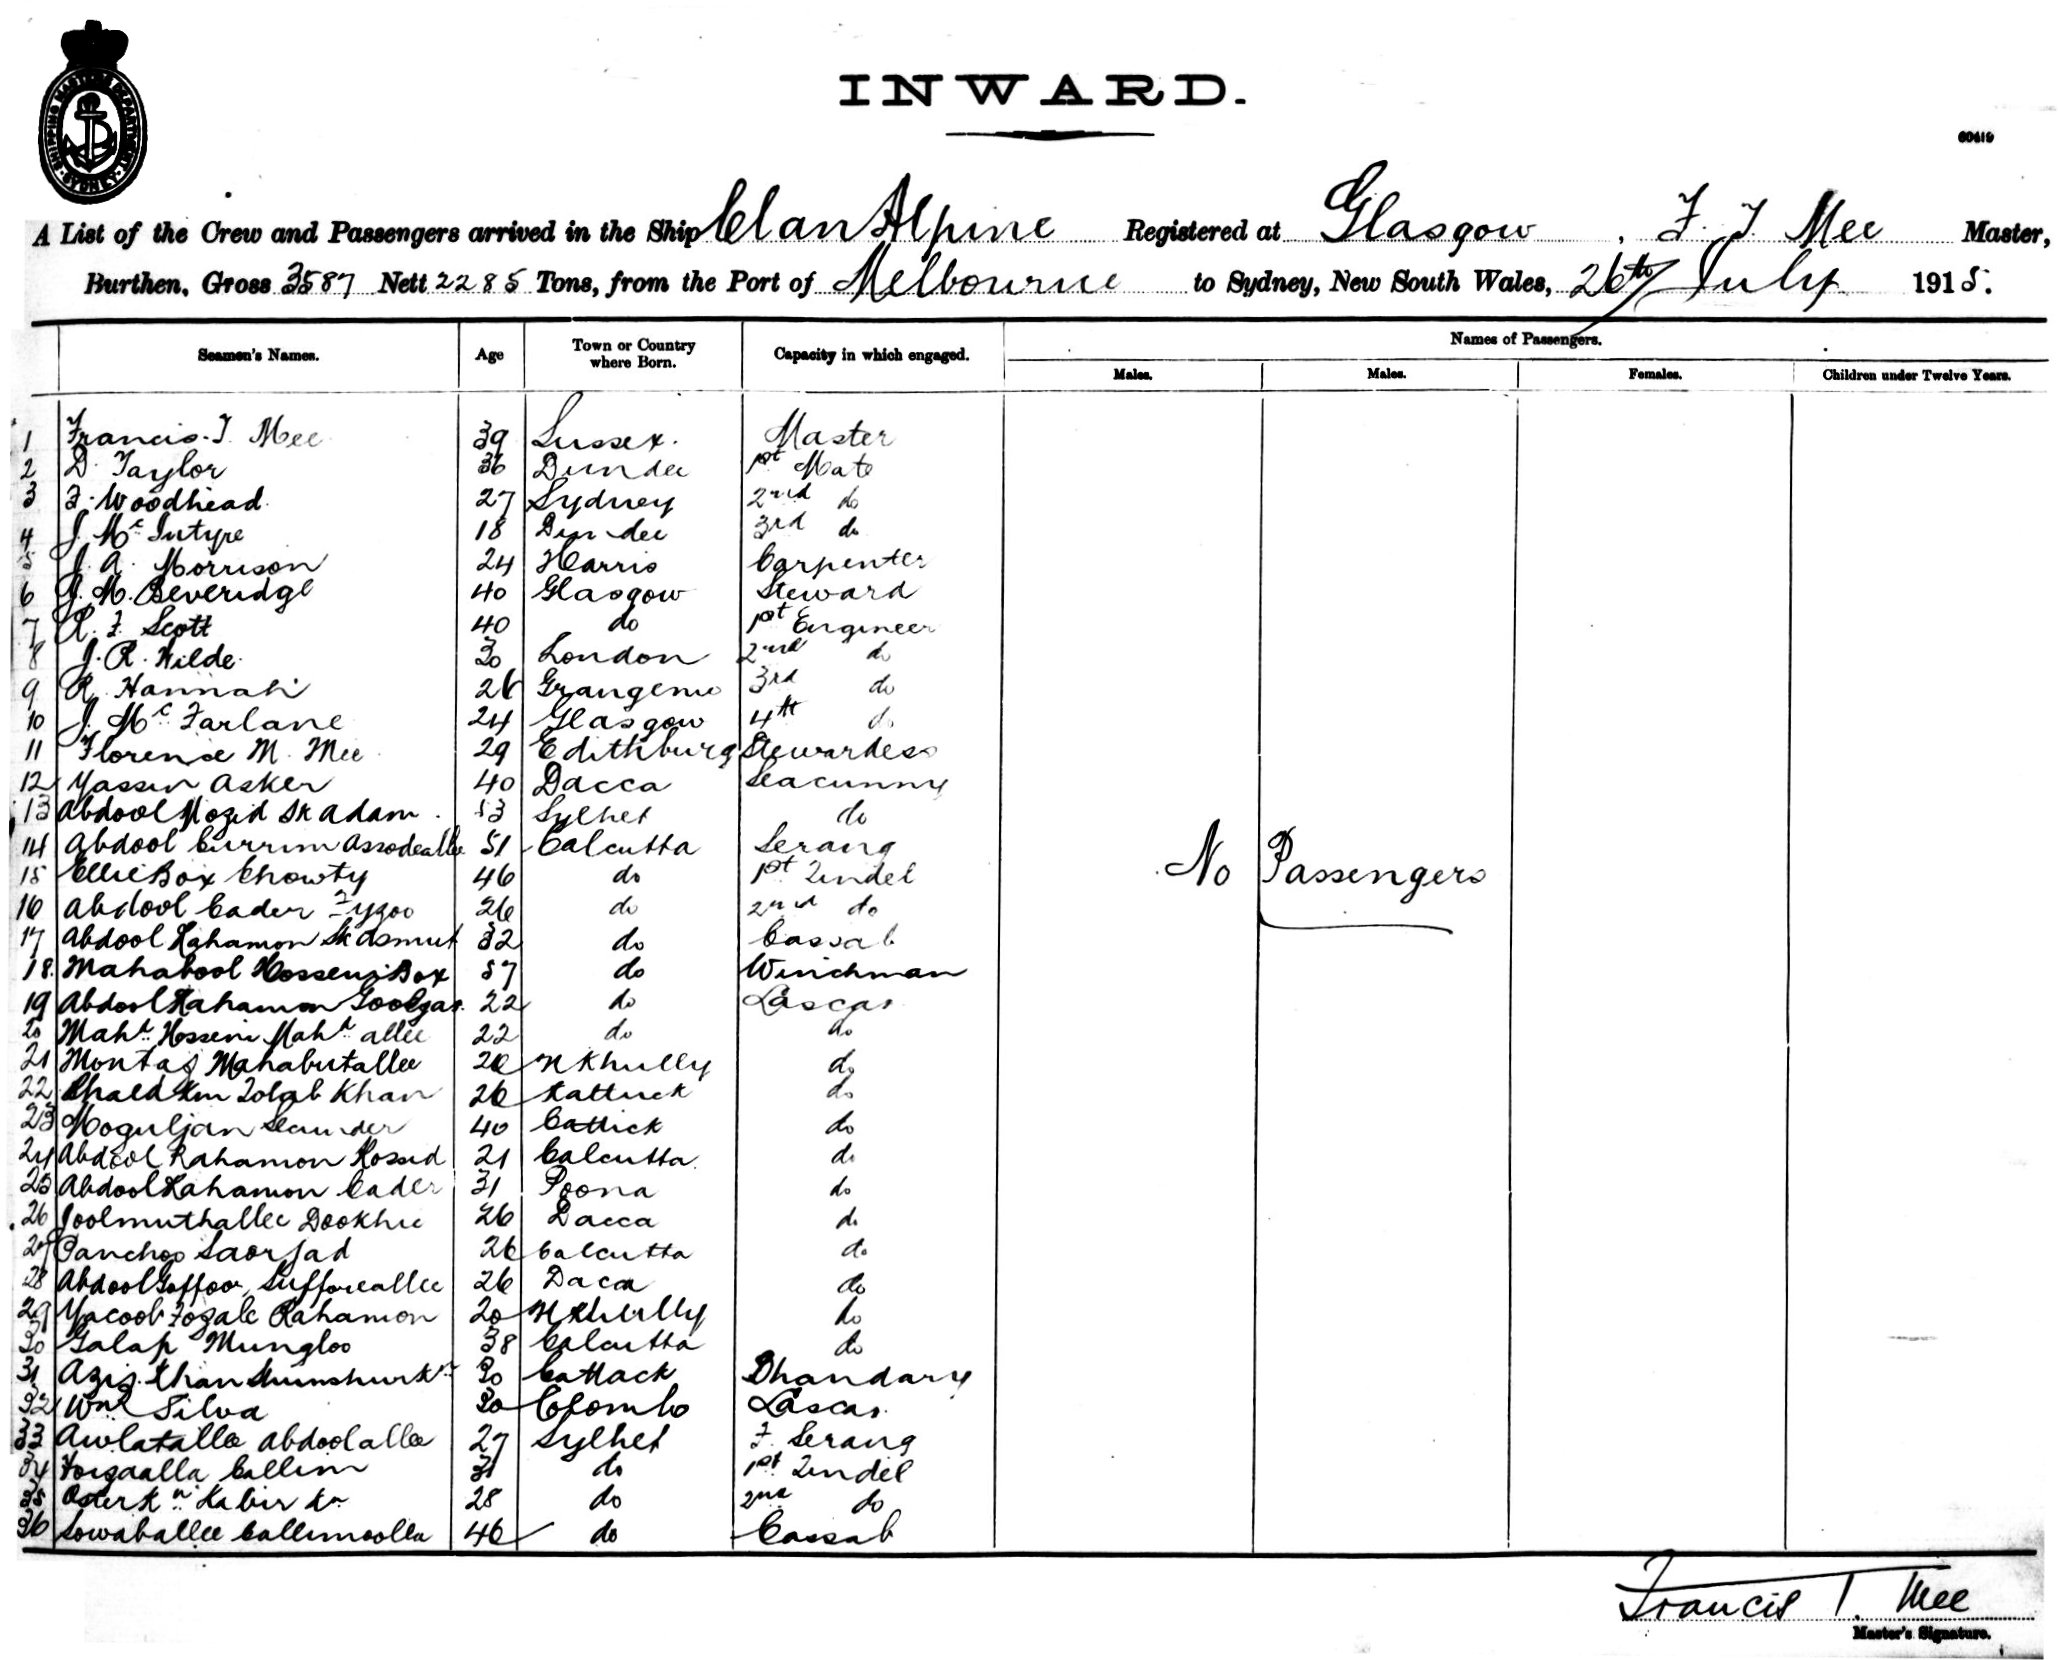 SHIPPING MASTER'S DEPARTMENT SYDNEY
INWARD.
60419
A List of the Crew and Passengers arrived in the Ship Clan Alpine Registered at Glasgow, F. T. Mee Master,
Burthen, Gross 3587 Nett 2285 Tons, from the Port of Melbourne to Sydney, New South Wales, 26th July 1915.
Names of Passengers.
Seamen's Names. Age Town or Country where Born. Capacity in which engaged. Males. Males. Females. Children under Twelve Years.
1 Francis. T. Mee 39 Sussex. Master
2 D. Taylor 36 Dundee 1st Mate
3 F. Woodhead 27 Sydney 2nd do
4 J. McIntyre 18 Dundee 3rd do
5 J. A. Morrison 24 Harris Carpenter
6 J. M. Beveridge 40 Glasgow Steward
7 R. F. Scott 40 do 1st Engineer
8 J. R. Wilde 30 London 2nd do
9 R. Hannah 26 Grangemo 3rd do
10 J. McFarlane 24 Glasgow 4th do
11 Florence M. Mee 29 Edithburg Stewardess
12 Yassin Asker 40 Dacca Seacunny
13 Abdool Mozid Sk Adam 53 Sylhet do
14 Abdool Currim Assodeallee 51 Calcutta Serang
15 Ellie Box Chowty 46 do 1st Tindel
16 Abdool Cader Fygoo 26 do 2nd do
17 Abdool Rahamon Sk Asmut 32 do Cassab
18. Mahabool Hossein Box 57 do Winchman
19 Abdool Rahamon Goolzar 22 do Lascar
20 Mahd Hossein Mahd allee 22 do do
21 Montaj Mahabutallee 20 N Khully do
22 Khan 26 Kattuck do
23 Moguljan 40 Cattick do
24 Abdool Rahamon Kossid 21 Calcutta do
25 Abdool Rahamon Cader 31 Poona do
26 Joolmuthallee Dookhie 26 Dacca do
27 Panchoo Saorjad 26 Calcutta do
28 Abdool Goffoor Sufforeallee 26 Daca do
29 Yacoob Fozale Rahamon 20 N Khully do
30 Galap Mungloo 38 Calcutta do
31 Aziz Khan 30 Cattack Bhandary
32 Wm Silva 30 Colombo Lascar
33 Awlatallee Abdoolallee 27 Sylhet F. Serang
34 Callim 31 do 1st Tindel
35 Kabir Kn 28 do 2nd do
36 Sowaballee Callimoolla 46 do Cassab
No Passengers
Francis T. Mee
Master's Signature.